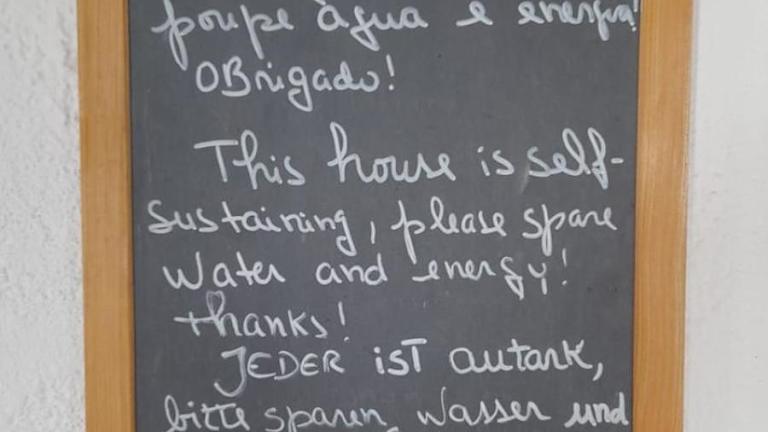 poupe àgua e energia!
OBrigado!
This house is self-
sustaining, please spare
water and energy!
thanks!
JEDER iST autark,
bitte sparen wasser und